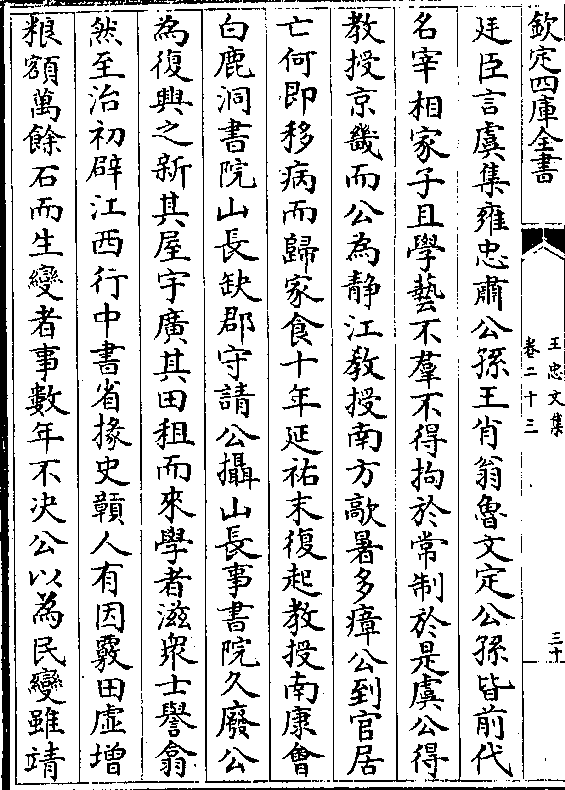 欽定四庫全書
王忠文集
卷二十三
三十
廷臣言虞集雍忠肅公孫王肖翁魯文定公孫皆前代
名宰相家子且學藝不羣不得拘於常制於是虞公得
教授京畿而公為静江教授南方歊暑多瘴公到官居
亡何即移病而歸家食十年延祐末復起教授南康會
白鹿洞書院山長缺郡守請公攝山長事書院久廢公
為復興之新其屋宇廣其田租而來學者滋衆士譽翕
然至治初辟江西行中書省掾史贑人有因覈田虚增
粮額萬餘石而生變者事數年不決公以為民變雖靖